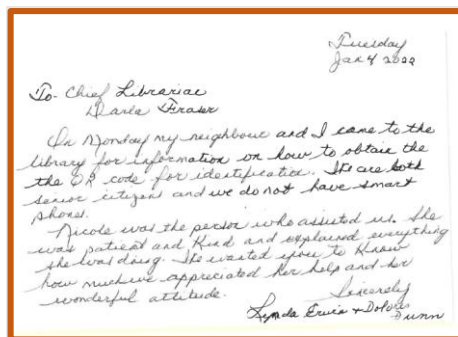 Tuesday
Jan 4 2022
To- Chief Librarian
Darla Fraser
On Monday my neighbour and I came to the
library for information on how to obtain the
the QR code for identification. We are both
senior citizens and we do not have smart
phones.
Nicole was the person who assisted us. She
was patient and kind and explained everything
she was doing. We wanted you to know
how much we appreciated her help and her
wonderful attitude.
Sincerely
Lynda + Dolores
Dunn